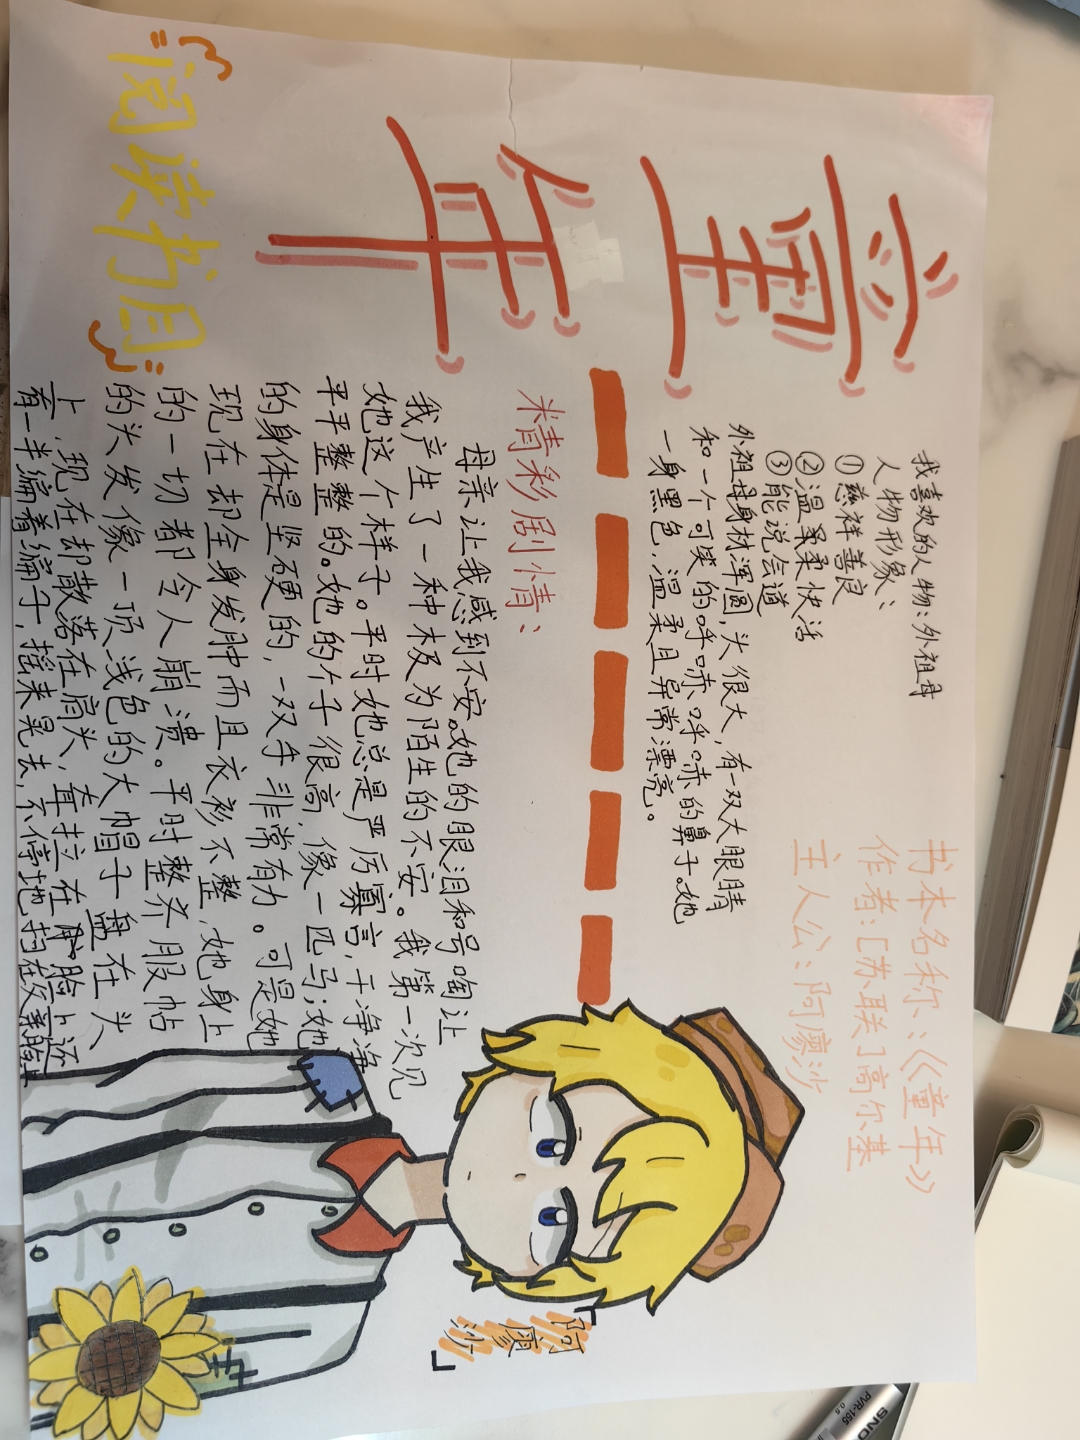 童年
阅读书目
书本名称:《童年》
作者:[苏联]高尔基
主人公:阿廖沙
我喜欢的人物:外祖母
人物形象:
①慈祥善良
②温柔快活
③能说会道
外祖母身材浑圆,头很大,有一双大眼睛
和一个可笑的呼哧呼哧的鼻子。她
一身黑色,温柔且异常漂亮。
精彩剧情:
母亲让我感到不安。她的眼泪和号啕让
我产生了一种极为陌生的不安。我第一次见
她这个样子。平时她总是严厉寡言,干净净
平平整整的。她的个子很高,像一匹马;她
的身体是坚硬的,一双手非常有力。可是她
现在却全身发肿而且衣衫不整,她身上
的一切都令人崩溃。平时整齐服帖
的头发像一顶浅色的大帽子盘在头
上,现在却散落在肩头,耷拉在脸上还
有一半编着辫子,摇来晃去,不停地扫在父亲脸上
「阿廖沙」
SNO
PVR-155
0.5